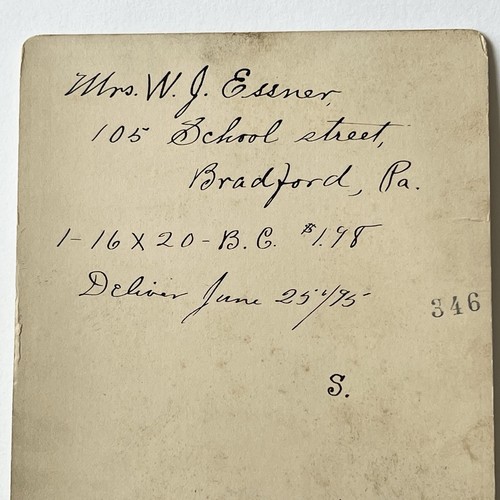 Mrs. W. J. Essner,
105 School street,
Bradford, Pa.
1-16 X 20 - B.C. $1.98
Deliver June 25"/95
346
S.